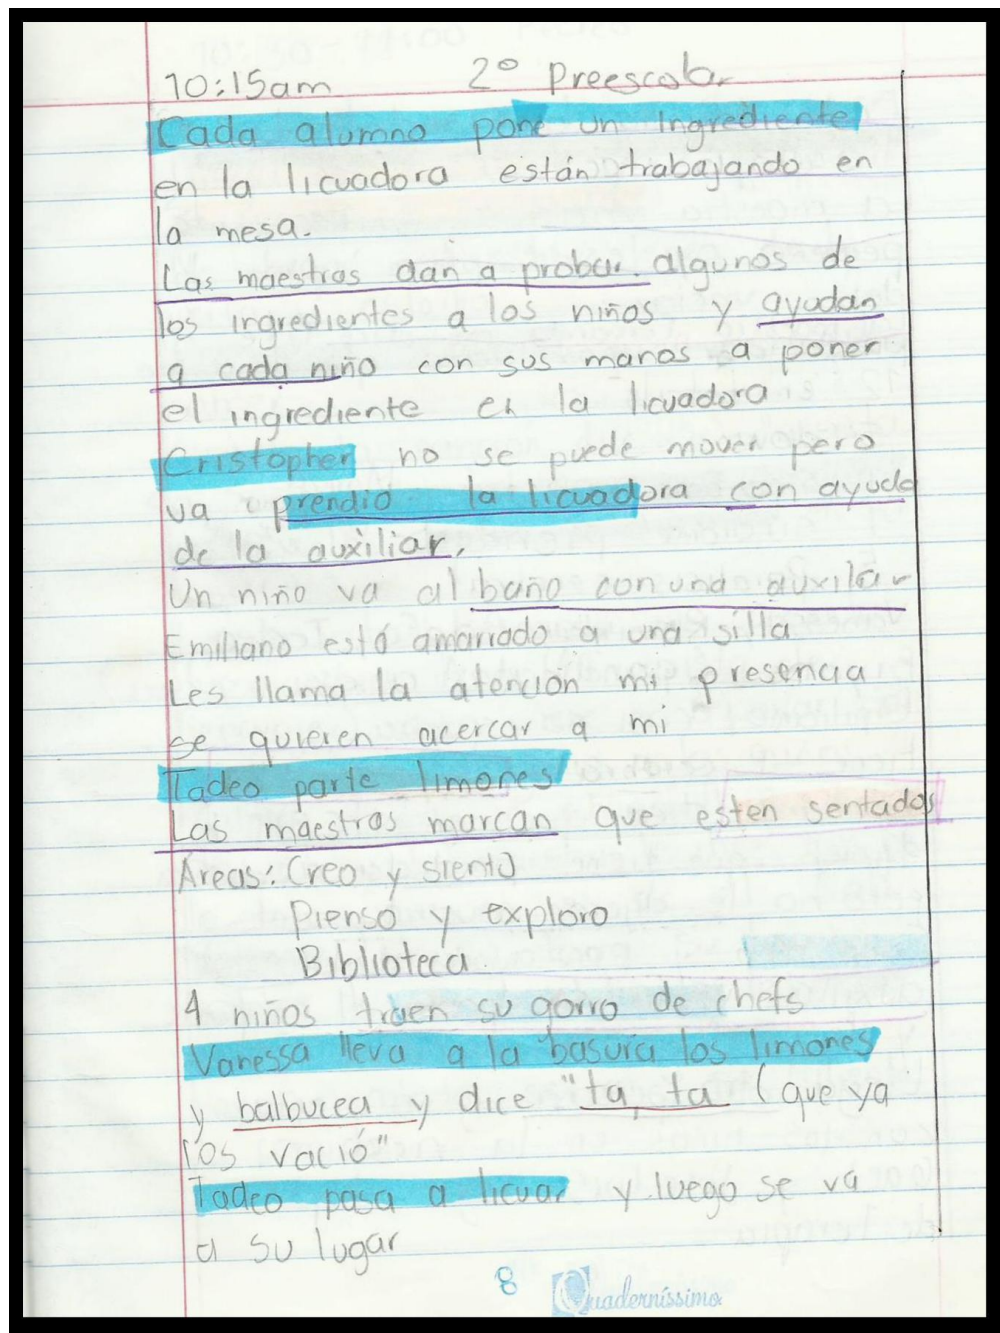 10:15am 2° Preescolar
Cada alumno pone un ingrediente
en la licuadora están trabajando en
la mesa.
Las maestras dan a probar algunos de
los ingredientes a los niños y ayudan
a cada niño con sus manos a poner
el ingrediente en la licuadora
Cristopher no se puede mover pero
va prendio la licuadora con ayuda
de la auxiliar.
Un niño va al baño con una auxiliar
Emiliano está amarrado a una silla
Les llama la atención mi presencia
se quieren acercar a mi
Tadeo parte limones
Las maestras marcan que esten sentados
Áreas: Creo y siento
Pienso y exploro
Biblioteca
4 niños traen su gorro de chefs
Vanessa lleva a la basura los limones
y balbucea y dice "ta, ta (que ya
los vació"
Tadeo pasa a licuar y luego se va
a su lugar
8 Quaderníssimo